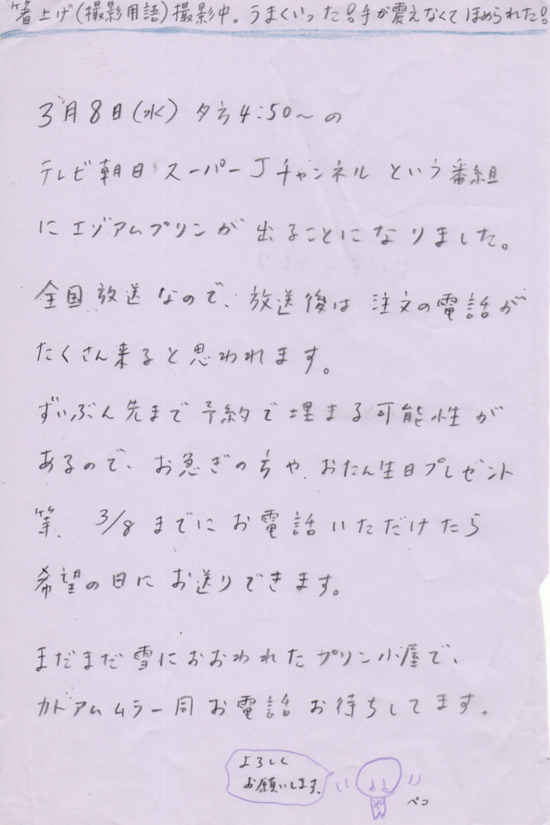 箸上げ(撮影用語)撮影中。うまくいった!手が震えなくてほめられた!
3月8日(水)夕方4:50～の
テレビ朝日スーパーJチャンネルという番組
にエゾアムプリンが出ることになりました。
全国放送なので、放送後は注文の電話が
たくさん来ると思われます。
ずいぶん先まで予約で埋まる可能性が
あるので、お急ぎの方や、おたん生日プレゼント
等、3/8までにお電話いただけたら
希望の日にお送りできます。
まだまだ雪におおわれたプリン小屋で、
カトアムムラ一同お電話お待ちしてます。
よろしく
お願いします。
ペコ